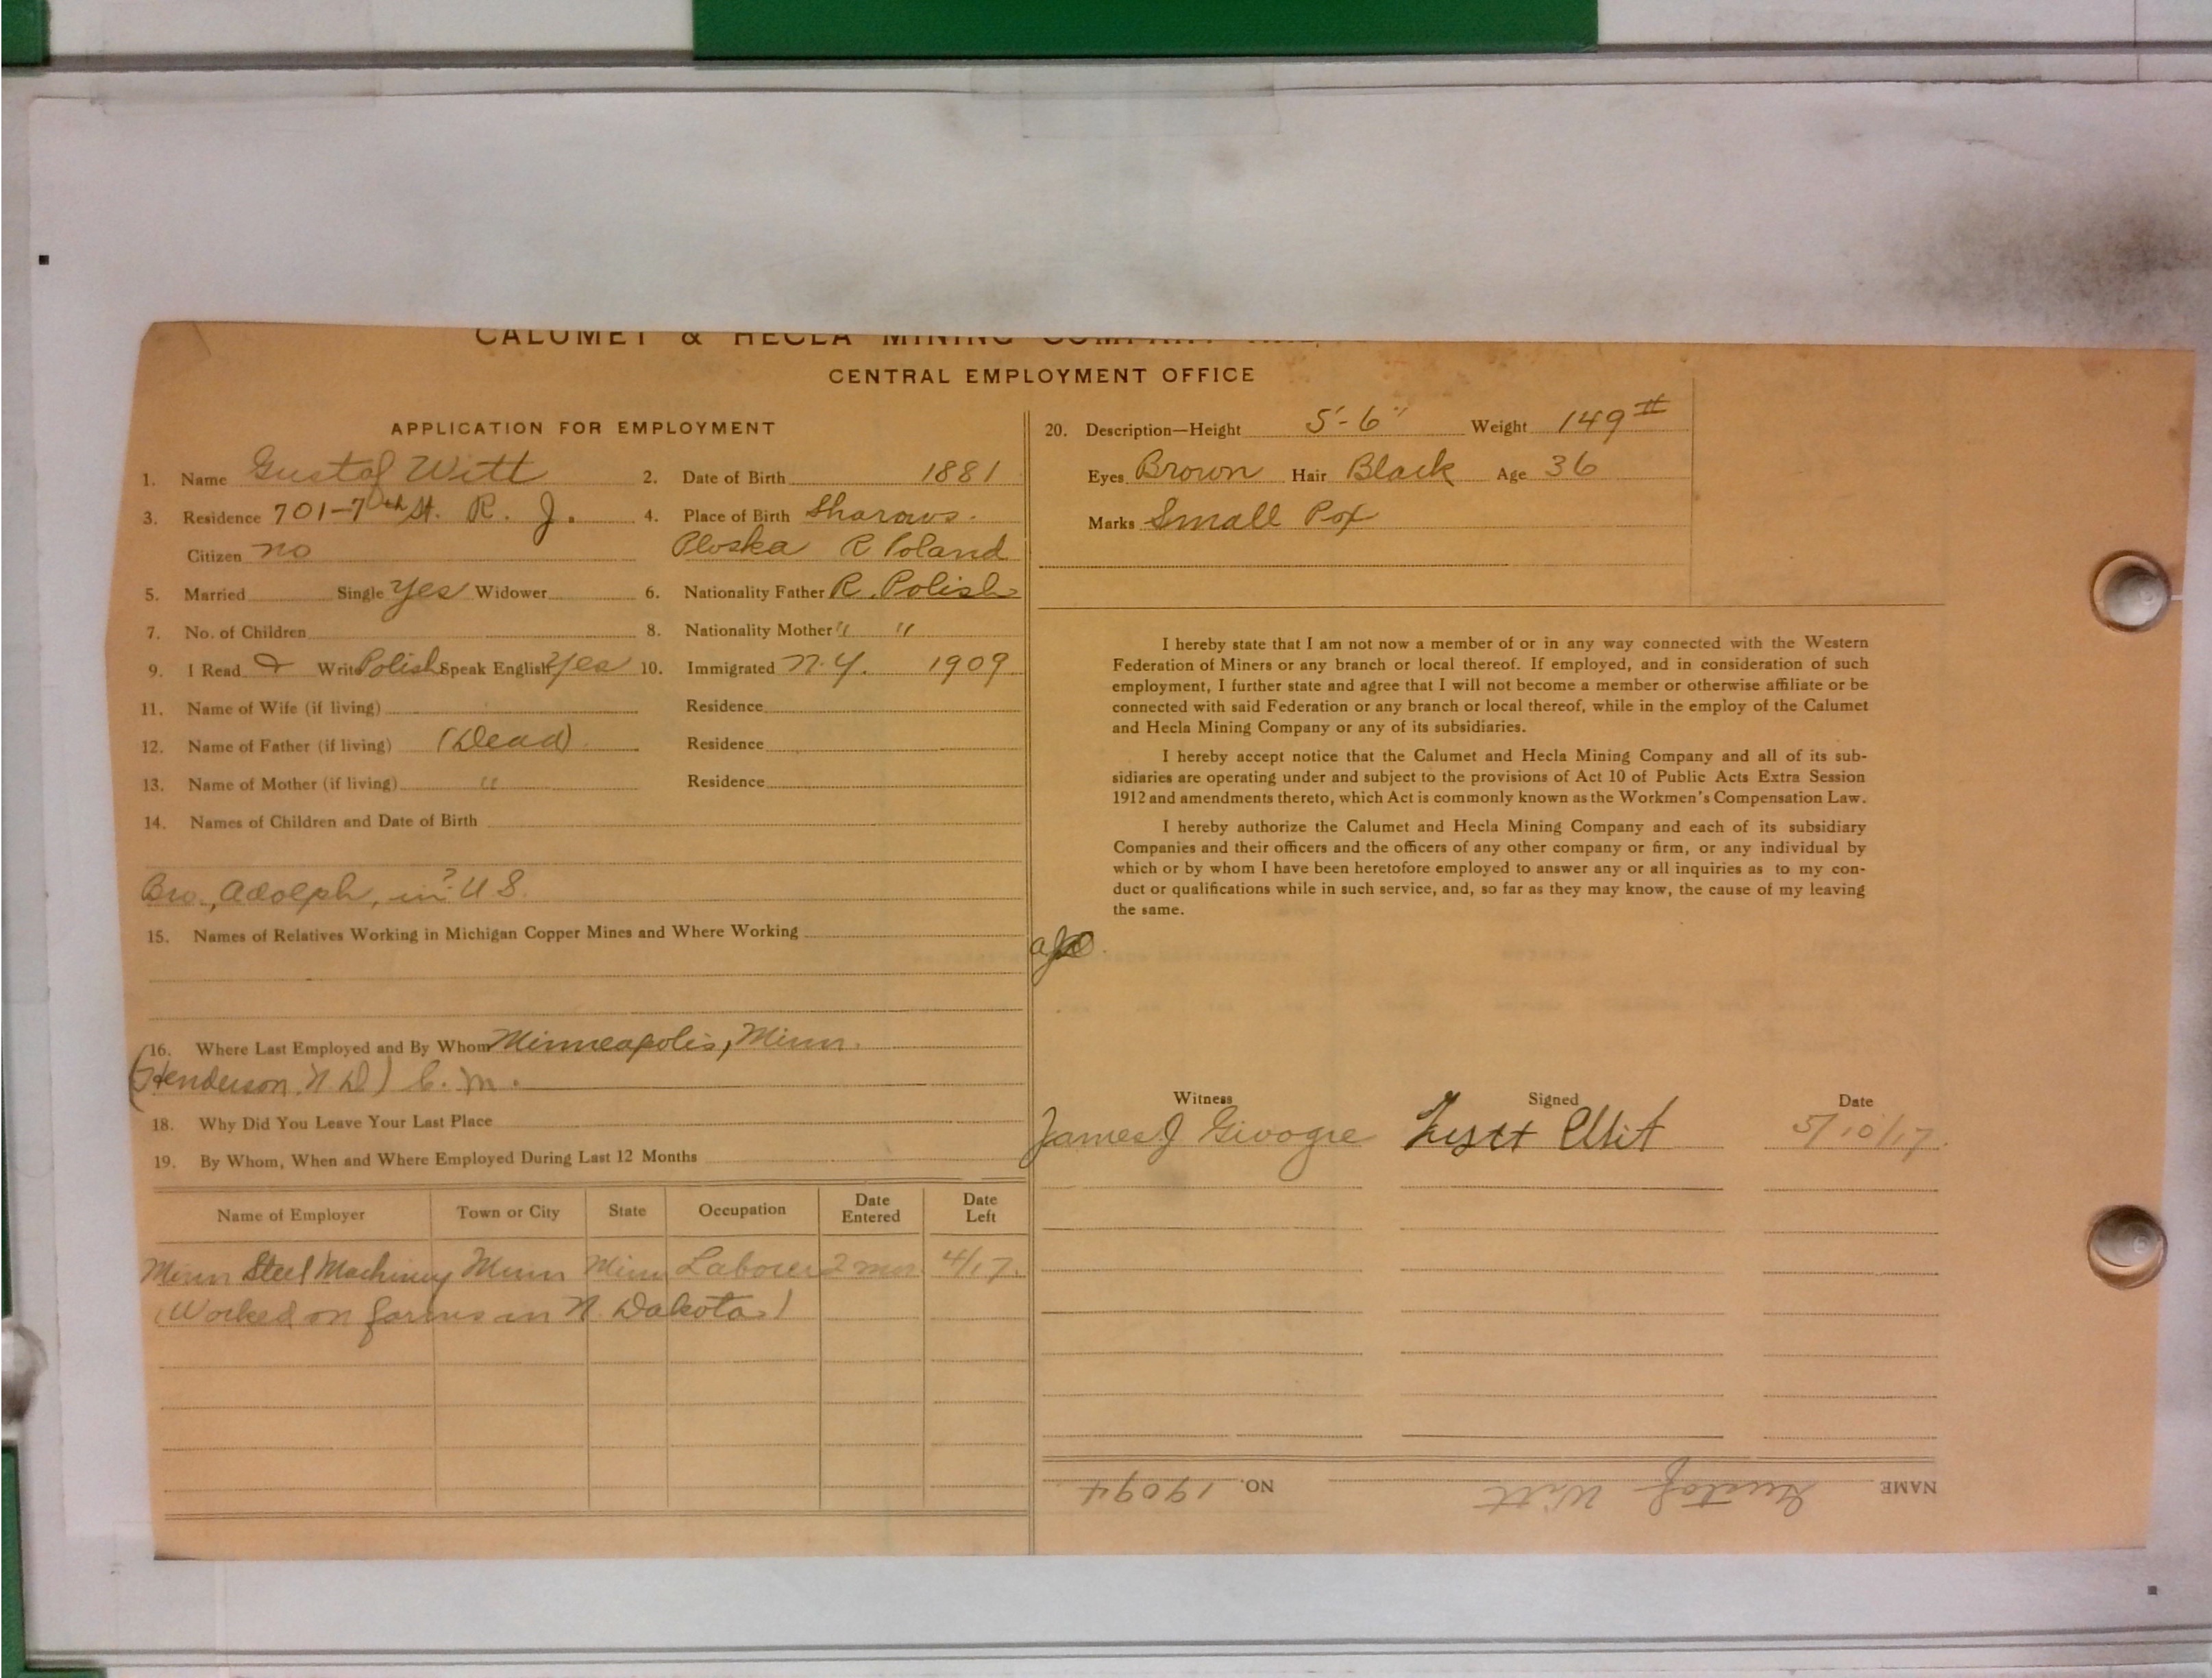 CALUMET & HECLA MINING COMPANY
CENTRAL EMPLOYMENT OFFICE
APPLICATION FOR EMPLOYMENT
1. Name Gustof Witt 2. Date of Birth 1881
3. Residence 701-7th St. R. J. 4. Place of Birth Sharows.
Citizen no Ploska R Poland
5. Married Single Yes Widower 6. Nationality Father R. Polish
7. No. of Children 8. Nationality Mother " "
9. I Read & Write Polish Speak English Yes 10. Immigrated N.Y. 1909
11. Name of Wife (if living) Residence
12. Name of Father (if living) (Dead) Residence
13. Name of Mother (if living) " Residence
14. Names of Children and Date of Birth
Bro., Adolph, in ? U S.
15. Names of Relatives Working in Michigan Copper Mines and Where Working
16. Where Last Employed and By Whom Minneapolis, Minn.
(Henderson, N D) C. M.
18. Why Did You Leave Your Last Place
19. By Whom, When and Where Employed During Last 12 Months
Name of Employer Town or City State Occupation Date Entered Date Left
Minn Steel Machinery Minn Minn Laborer 2 mos 4/17.
(Worked on farms in N. Dakota)
20. Description—Height 5'-6" Weight 149#
Eyes Brown Hair Black Age 36
Marks Small Pox
I hereby state that I am not now a member of or in any way connected with the Western
Federation of Miners or any branch or local thereof. If employed, and in consideration of such
employment, I further state and agree that I will not become a member or otherwise affiliate or be
connected with said Federation or any branch or local thereof, while in the employ of the Calumet
and Hecla Mining Company or any of its subsidiaries.
I hereby accept notice that the Calumet and Hecla Mining Company and all of its sub-
sidiaries are operating under and subject to the provisions of Act 10 of Public Acts Extra Session
1912 and amendments thereto, which Act is commonly known as the Workmen's Compensation Law.
I hereby authorize the Calumet and Hecla Mining Company and each of its subsidiary
Companies and their officers and the officers of any other company or firm, or any individual by
which or by whom I have been heretofore employed to answer any or all inquiries as to my con-
duct or qualifications while in such service, and, so far as they may know, the cause of my leaving
the same.
Witness Signed Date
James J Givogre 5/10/17.
NAME Gustof Witt NO. 19094